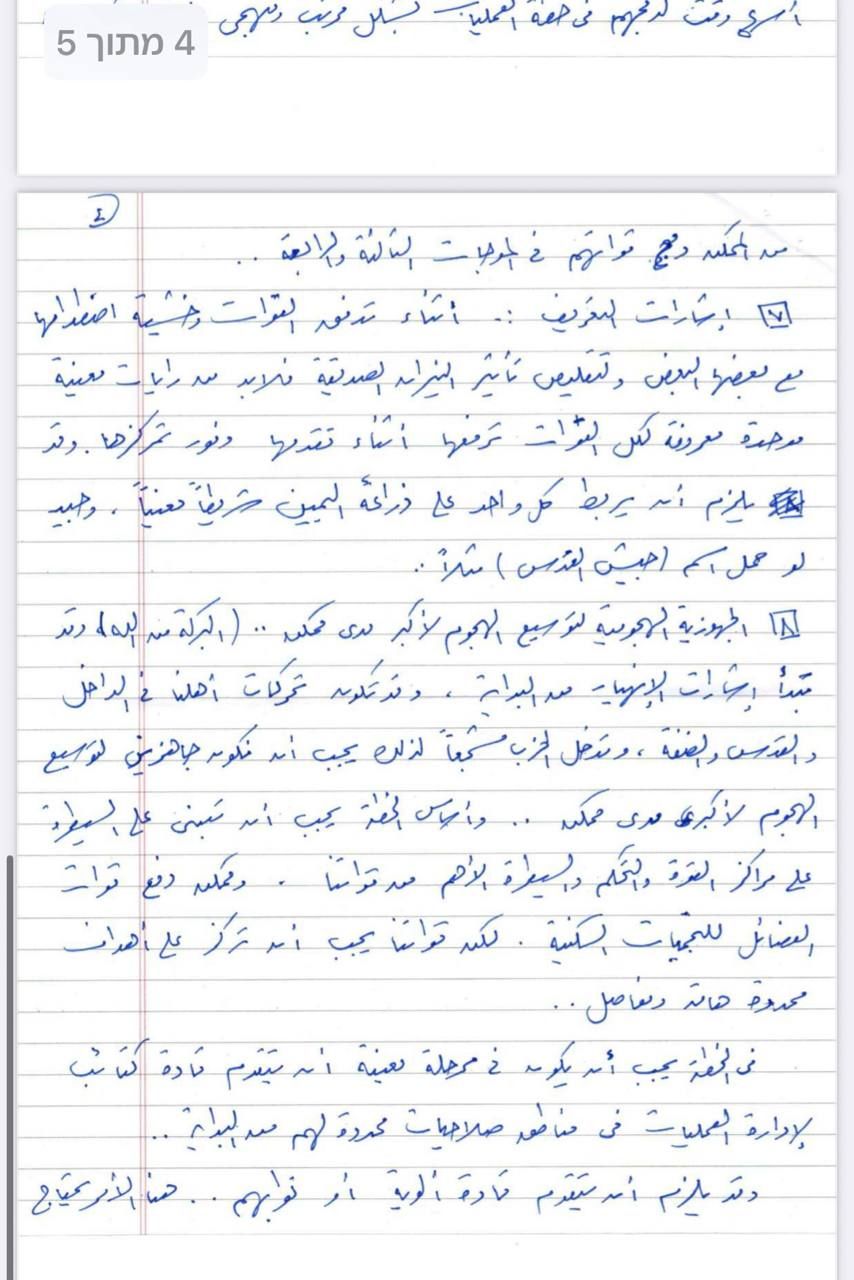 أسرع وقت لدمجهم في خطة العمليات بشكل مرتب ومنهجي
4 מתוך 5
٤
من الممكن دمج قواتهم في الموجات الثالثة والرابعة ..
٧ إشارات التعريف :. أثناء تدفق القوات وخشية اصطدامها
مع بعضها البعض ولتقليص تأثير النيران الصديقة فلابد من رايات معينة
موحدة معروفة لكل القوات ترفعها أثناء تقدمها وفور تمركزها. وقد
يلزم أن يربط كل واحد على ذراعه اليمين شريطاً معيناً ، وحبذ
لو حمل اسم (جيش القدس) مثلاً ..
٨ الجهوزية الهجومية لتوسيع الهجوم لأكبر مدى ممكن .. (البركة من الله) وقد
تبدأ إشارات الإنهيار من البداية ، وقد تكون تحركات أهلنا في الداخل
والقدس والضفة ، وتدخل الحزب مشجعاً لذلك يجب أن نكون جاهزين لتوسيع
الهجوم لأكبر مدى ممكن .. وأساس الخطة يجب أن تبنى على السيطرة
على مراكز القوة والتحكم والسيطرة الأهم من قواتنا . وممكن دفع قوات
الفصائل للتجمعات السكنية . لكن قواتنا يجب أن تركز على أهداف
محدودة هامة ومفاصل ..
في الخطة يجب أن يكون في مرحلة معينة أن يتقدم قادة كتائب
لإدارة العمليات في مناطق صلاحيات محدودة لهم من البداية ..
وقد يلزم أن يتقدم قادة ألوية أو نوابهم .. هذا الأمر يحتاج